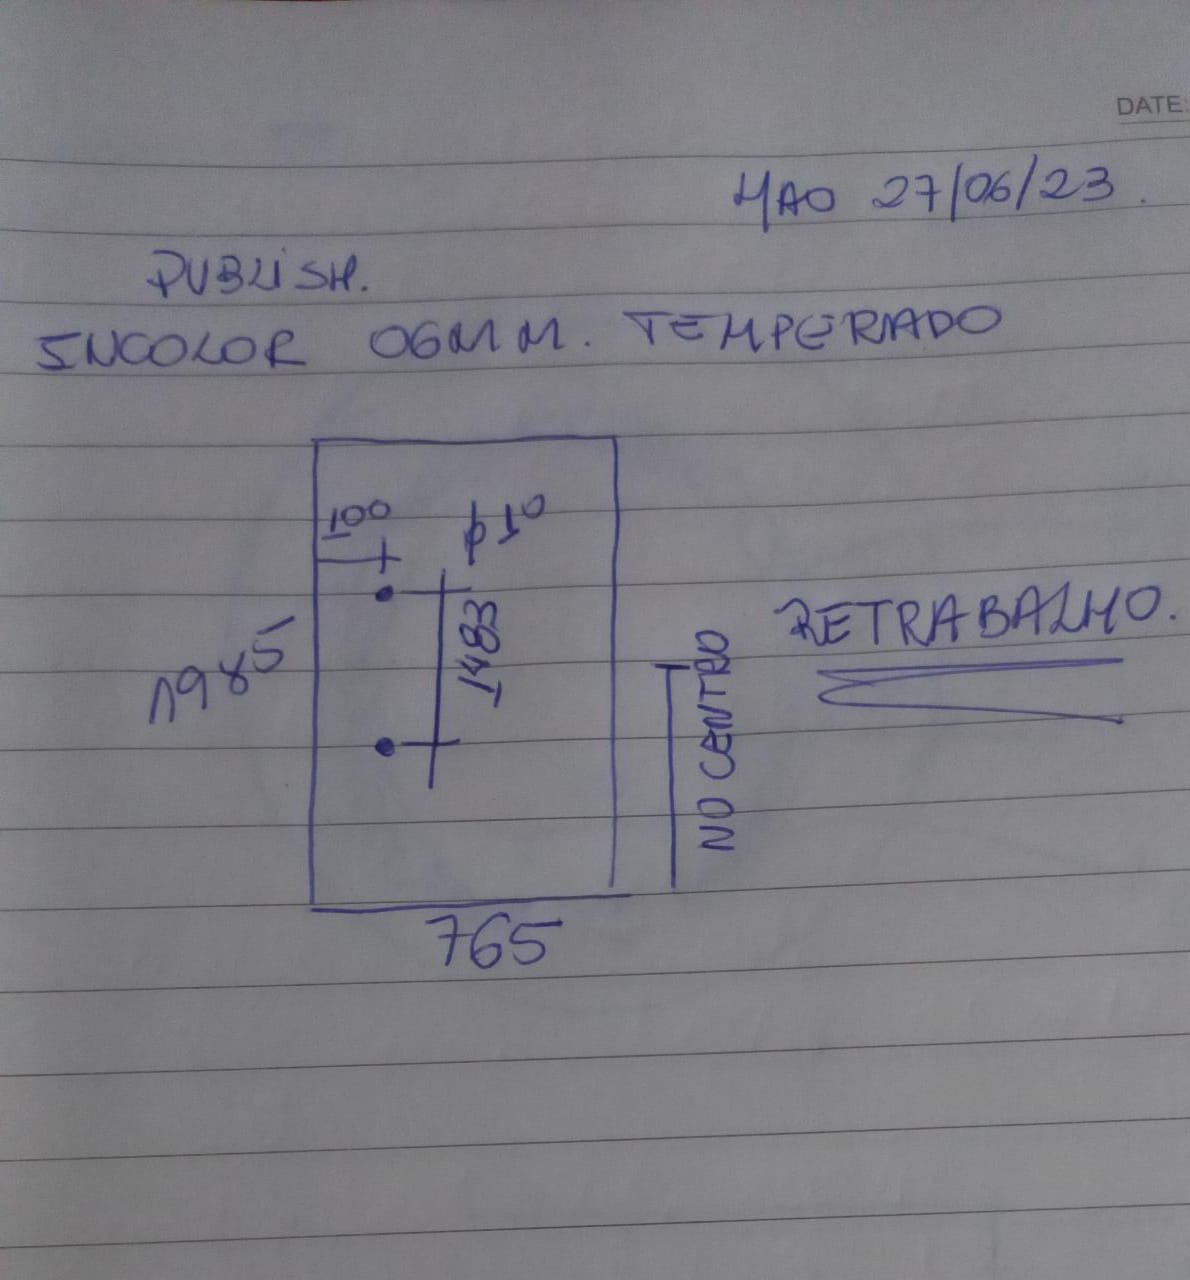 DATE:
MAO 27/06/23.
PUBLISH.
INCOLOR 06MM. TEMPERADO
100
φ10
1483
1985
NO CENTRO
RETRABALHO.
765